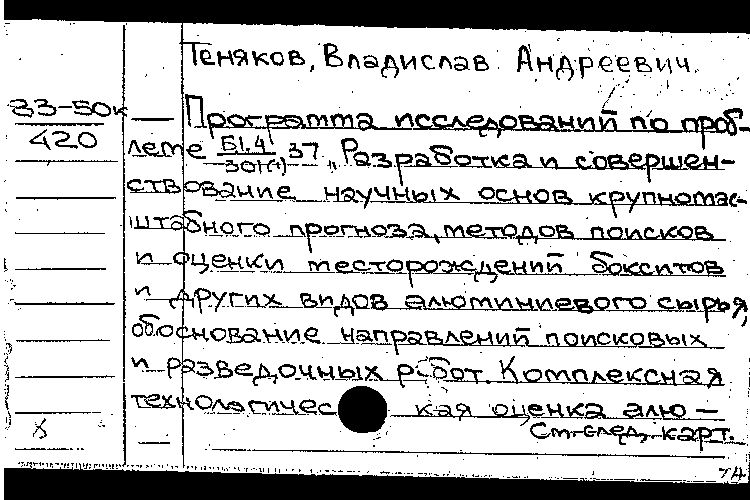 Теняков, Владислав Андреевич
33-50к
420
Программа исследований по проб-
леме Б1.4/301(1) 37 „Разработка и совершен-
ствование научных основ крупномас-
штабного прогноза, методов поисков
и оценки месторождений бокситов
и других видов алюминиевого сырья,
обоснование направлений поисковых
и разведочных работ. Комплексная
технологическая оценка алю-
См. след. карт.